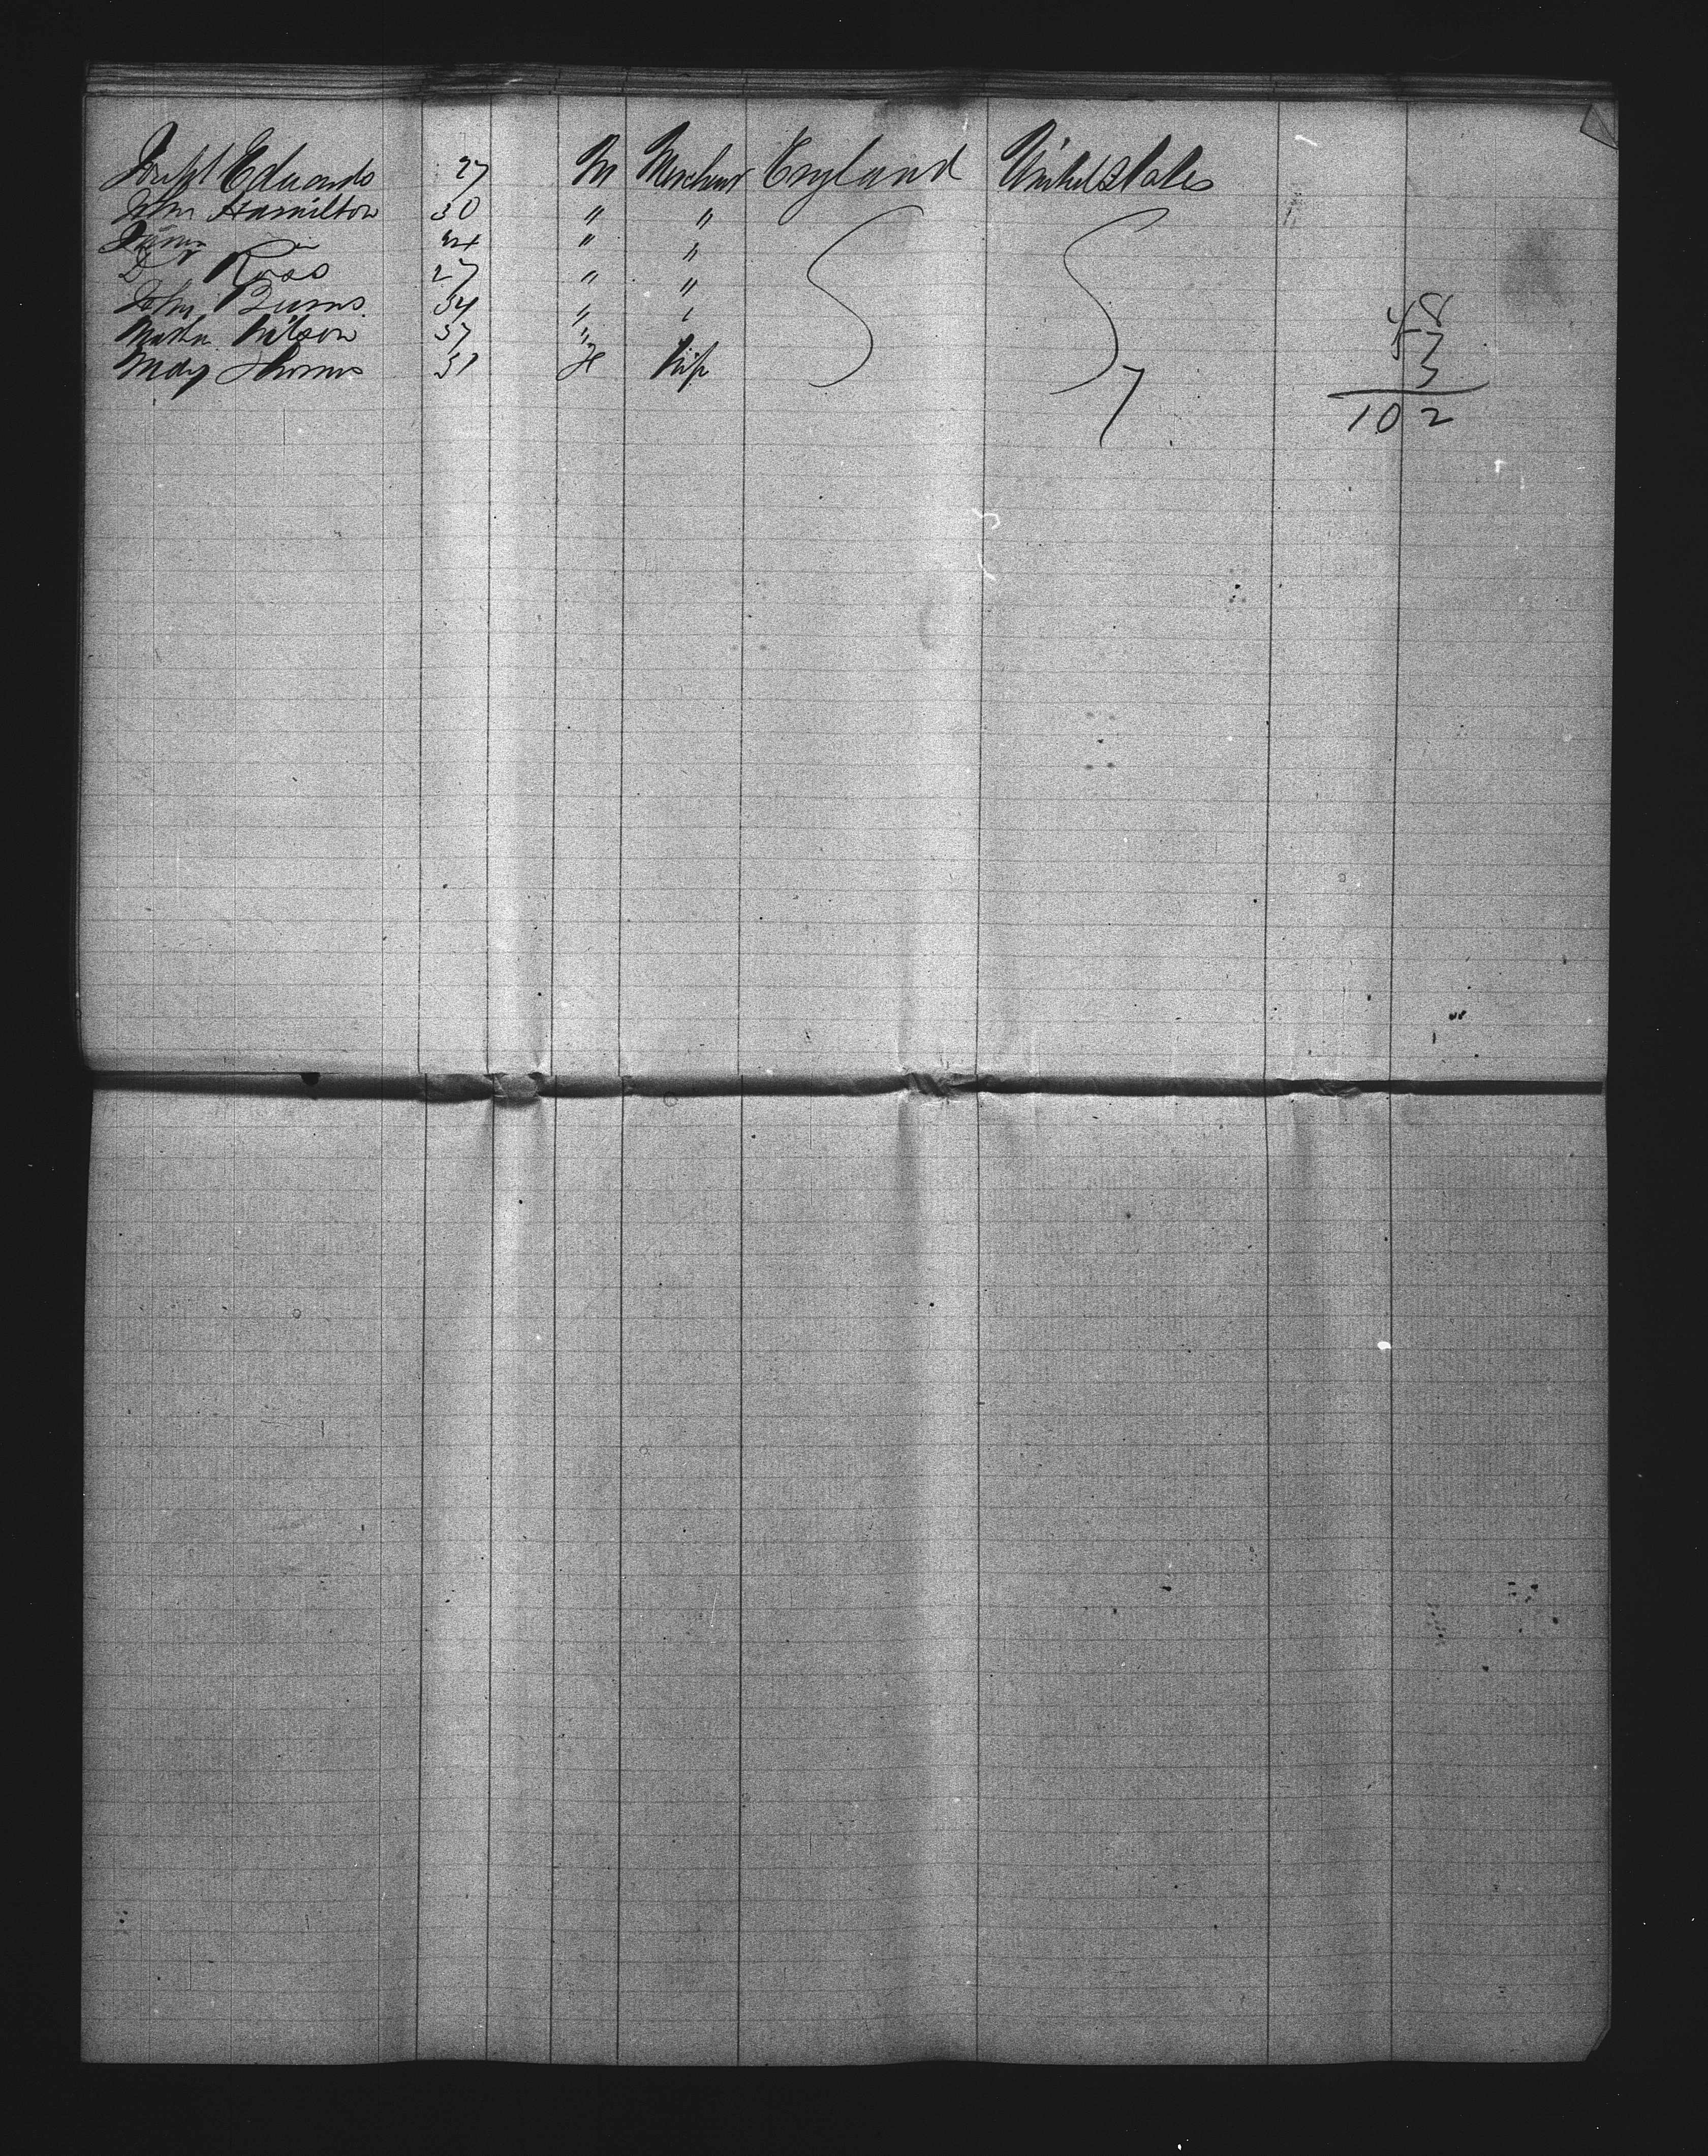 Joseph Edwards 27 M Merchant England United States
John Hamilton 30 " "
James 24 " "
D Ross 27 " "
John Burns 34 " "
Martha Wilson 37 "
Mary Thomas 31 F Wife
7
48
57
3
102